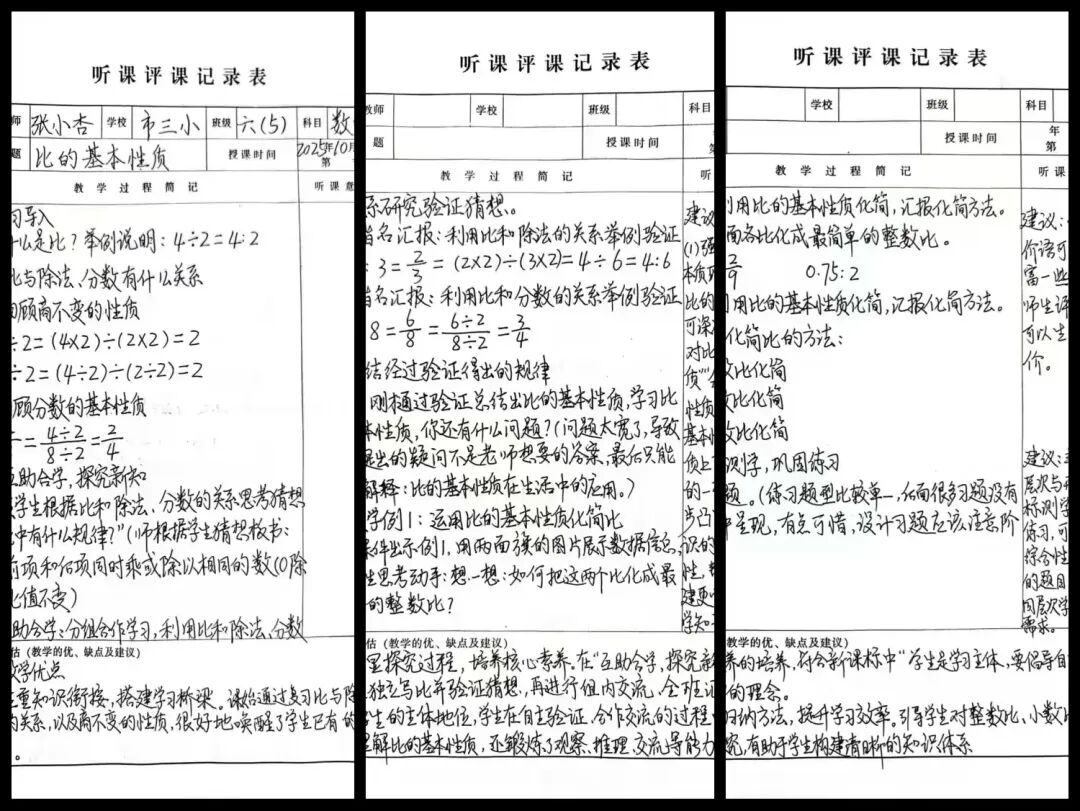 听课评课记录表
师 张小杏 学校 市三小 班级 六(5) 科目 数
题 比的基本性质 授课时间 2025年10月
第
教学过程简记 听课意
习导入
什么是比？举例说明：4÷2=4:2
比与除法、分数有什么关系
回顾商不变的性质
÷2=(4×2)÷(2×2)=2
÷2=(4÷2)÷(2÷2)=2
顾分数的基本性质
=4÷2/8÷2=2/4
互助合学，探究新知
学生根据比和除法、分数的关系思考猜想
中有什么规律？"(师根据学生猜想板书：
前项和后项同时乘或除以相同的数(0除
比值不变)
助合学：分组合作学习，利用比和除法、分数
估（教学的优、缺点及建议）
教学优点
重知识衔接，搭建学习桥梁。课始通过复习比与除
的关系，以及商不变的性质，很好地唤醒了学生已有的
。
听课评课记录表
教师 学校 班级 科目
题 授课时间
教学过程简记 听
系研究验证猜想。
指名汇报：利用比和除法的关系举例验证
:3=2/3=(2×2)÷(3×2)=4÷6=4:6
指名汇报：利用比和分数的关系举例验证
8=6/8=6÷2/8÷2=3/4
结经过验证得出的规律
刚才通过验证总结出比的基本性质，学习比
本性质，你还有什么问题？(问题太宽了，导致
提出的疑问不是老师想要的答案，最后只能
解释：比的基本性质在生活中的应用。)
学例1：运用比的基本性质化简比
课件出示例1，用两面旗的图片展示数据信息，
生思考动手：想一想：如何把这两个比化成最
的整数比？
建议
(1)强
本质
比的
可深
对比
质"
性质
基本
质上
的一
步凸
识的
性，
建更
学知
估（教学的优、缺点及建议）
重探究过程，培养核心素养。在"互助合学，探究新
独立写比并验证猜想，再进行组内交流，全班汇
生的主体地位，学生在自主验证、合作交流的过程
理解比的基本性质，还锻炼了观察、推理、交流等能力
听课评课记录表
学校 班级 科目
授课时间 年
第
教学过程简记 听课
利用比的基本性质化简，汇报化简方法。
面各比化成最简单的整数比。
2/9 0.75:2
利用比的基本性质化简，汇报化简方法。
化简比的方法：
数比化简
数比化简
数比化简
测学，巩固练习
题。(练习题型比较单一，后面很多习题没有
中呈现，有点可惜，设计习题应该注意阶
建议：
价语可
富一些
师生评
可以生
价。
建议：
层次与
标测学
练习，可
综合性
的题目
同层次学
需求。
教学评估（教学的优、缺点及建议）
养的培养，符合新课标中"学生是学习主体，要倡导自
的理念。
归纳方法，提升学习效率。引导学生对整数比，小数比
究，有助于学生构建清晰的知识体系